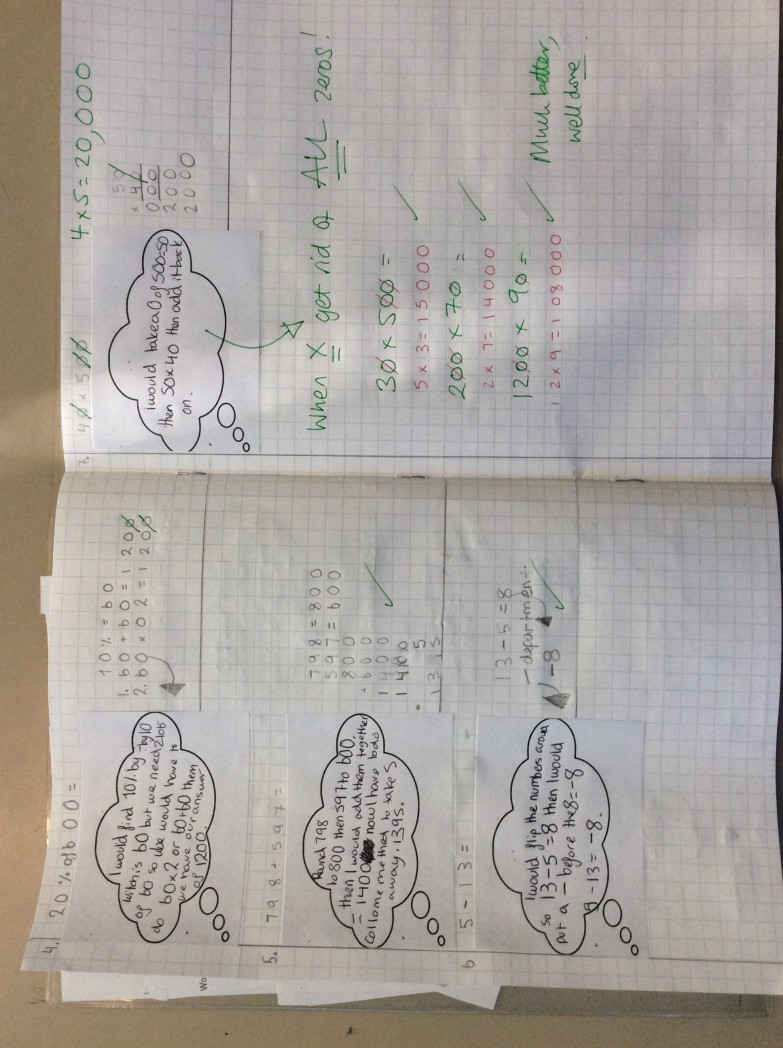 4. 20% of 600=
I would find 10% by ÷by10
witch is 60 but we need 2 lots
of 60 so we would have to
do 60x2 or 60+60 them
we have our answer
of 1200.
10% = 60
1. 60 + 60 = 1200
2. 60 x 02 = 1200
5. 798 + 597 =
Round 798
to 800 then 597 to 600.
= then I would add them together
= 1400 now I have to do
collome methed to take 5
away. 1395.
798 = 800
597 = 600
800
+ 600
1400
1400
- 5
1395
6 5 - 13 =
I would flip the numbers around
so 13-5=8 then I would
put a - before the 8=-8
5-13=-8.
13-5=8
-8
7. 40 x 500
4 x 5 = 20,000
I would take a 0 of 500=50
then 50x40 then add it back
on.
50
x 40
000
200
2000
When x get rid of ALL zeros!
30 x 500 =
5 x 3 = 15000
200 x 70 =
2 x 7 = 14000
1200 x 90 =
12 x 9 = 108000
Much better,
well done.
Wo